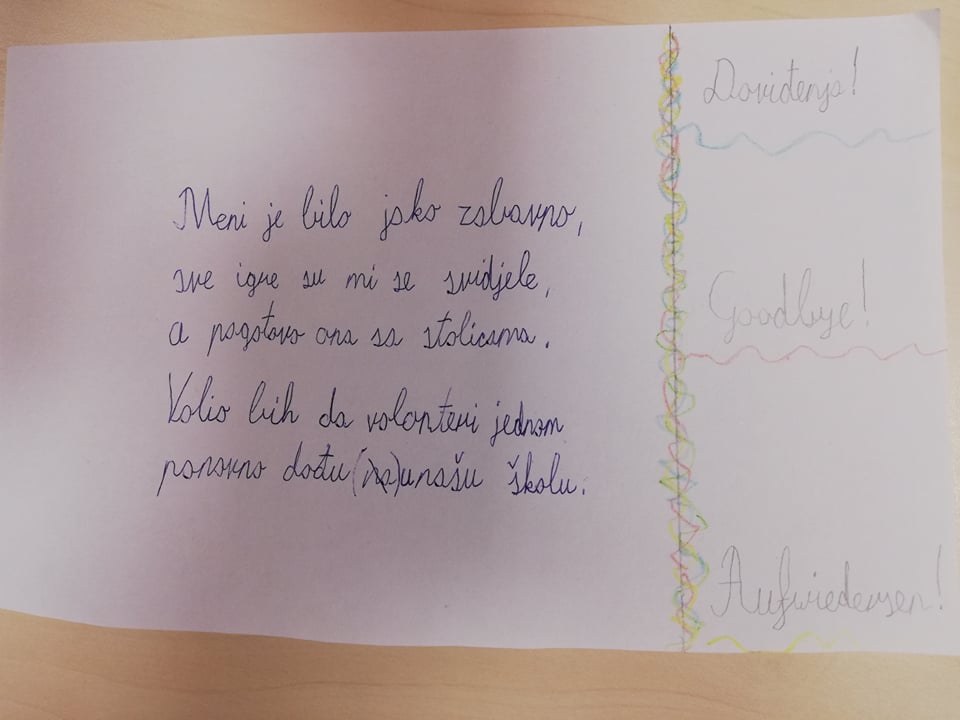 Meni je bilo jako zabavno,
sve igre su mi se svidjele,
a pogotovo ona sa stolicama.
Volio bih da volonteri jednom
ponovno dođu (na) u našu školu.
Doviđenja!
Goodbye!
Aufwiedersen!